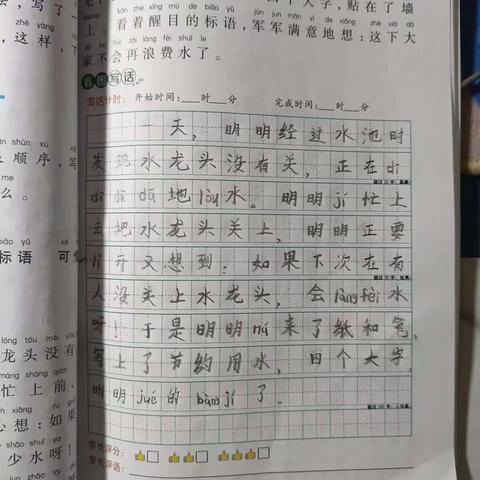 写了一
zhè yàng
，这样，下
shùn xù
顺序，写
me
么。
biāo yǔ
标语
可
lóng tóu méi
龙头没有
máng shàng qián
忙上前，
xiǎng rú
心想：如果
shǎo shuǐ ya
少水呀！
个大字，贴在了墙
kàn zhe xǐng mù de biāo yǔ jūn jun mǎn yì de xiǎng
上。看着醒目的标语，军军满意地想：这下大
jiā bú huì zài làng fèi shuǐ le
家不会再浪费水了。
看图写话
写话计时： 开始时间：___时___分 完成时间：___时___分
一天，明明经过水池时
发现水龙头没有关，正在dī
dī dā dā地lòu水。明明jí忙上
去把水龙头关上，明明正要
离开又想到：如果下次在有
人没关上水龙头，会làngfèi水
呀！于是明明ná来了纸和笔，
写上了节约用水，四个大字，
明明jué的bàng jí了。
家长评分：
家长评语：